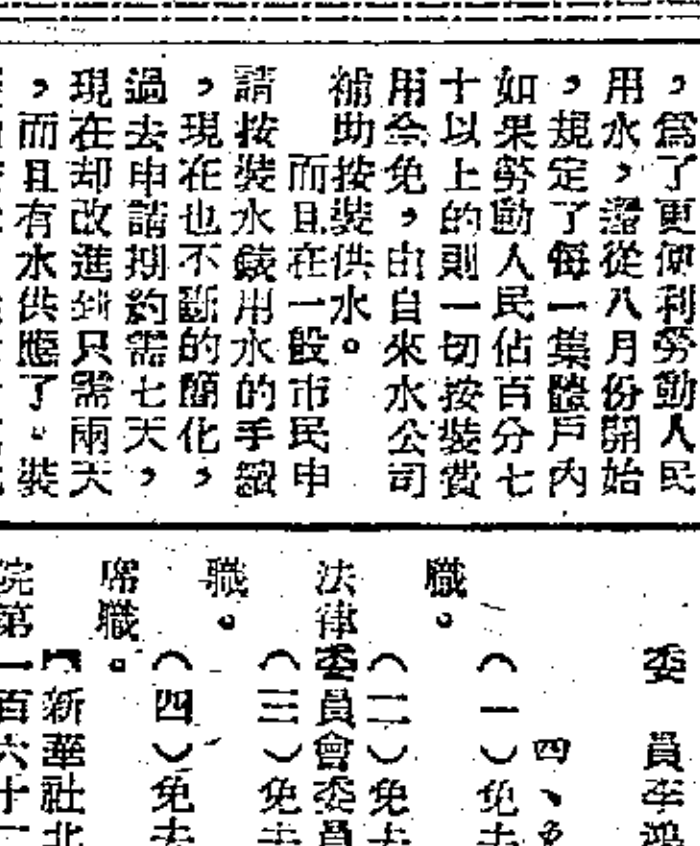 ，爲了更便利勞動人民
用水，還從八月份開始
，規定了每一集體戶內
如果勞動人民佔百分七
十以上的則一切按裝費
用全免，由自來水公司
補助按裝供水。
而且在一般市民申
請按裝水錶用水的手續
，現在也不斷的簡化，
過去申請期約需七天，
現在却改進到只需兩天
，而且有水供應了。裝
委員李鴻
四、免
職。
（一）免去
（二）免去
法律委員會委員
職。
（三）免去
席職。
（四）免去
新華社北
院第一百六十